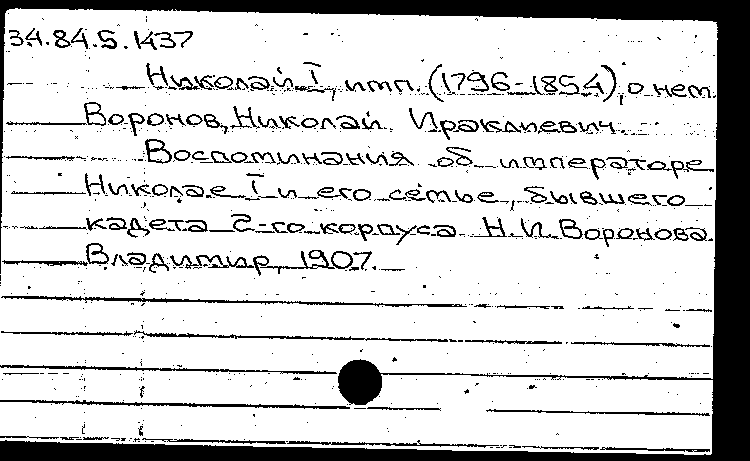 34.84.5.1437
Николай I, имп. (1796-1854), о нем.
Воронов, Николай Ираклиевич.
Воспоминания об императоре
Николае I и его семье, бывшего
кадета 2-го корпуса Н.И. Воронова.
Владимир, 1907.